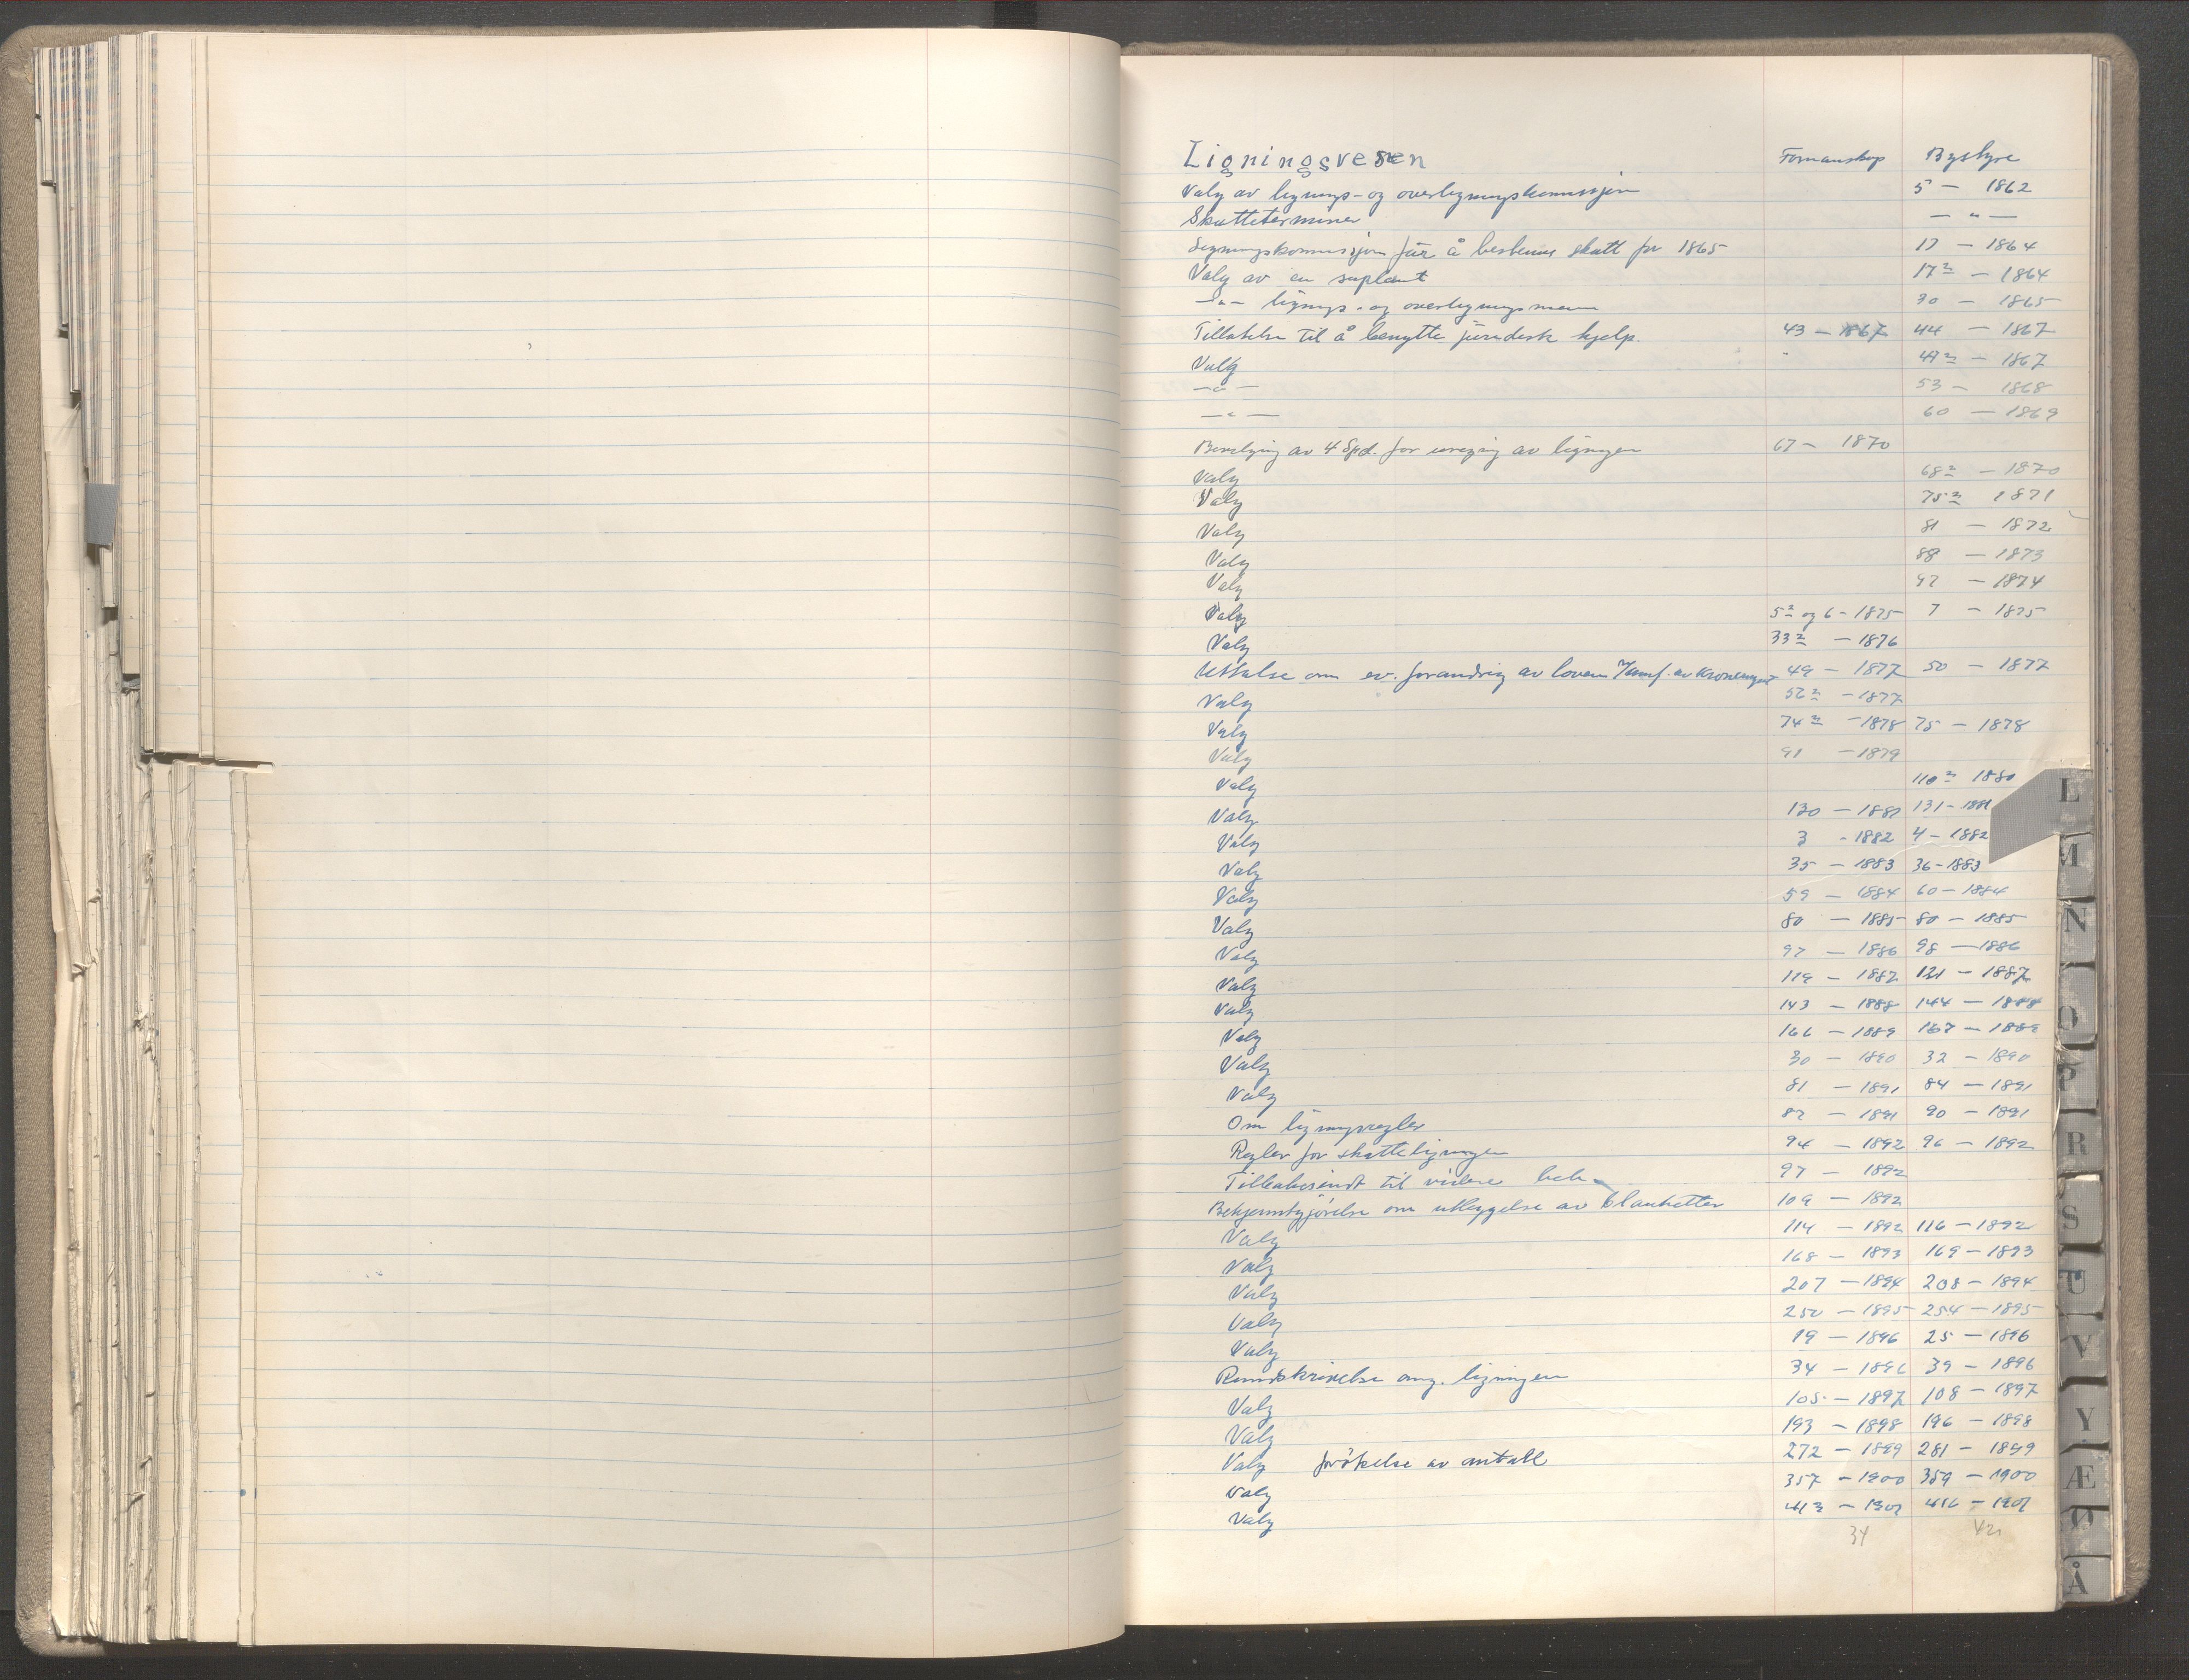 Ligningsvesen Formanskap Bystyre
Valg av lignings- og overligningskommisjon 5 - 1862
Skatteterminer — " —
Ligningskommisjon får å bestemme skatt for 1865 17 - 1864
Valg av en suplant 17² - 1864
—"— lignings- og overligningsmenn 30 - 1865
Tillatelse til å benytte juridisk hjelp. 43 - 1867 44 - 1867
Valg 49² - 1867
—"— 53 - 1868
—"— 60 - 1869
Bevilgning av 4 Spd. for av ligningen 67 - 1870
Valg 68² - 1870
Valg 75² 1871
Valg 81 - 1872
Valg 88 - 1873
Valg 97 - 1874
Valg 5² og 6 - 1875 7 - 1875
Valg 33² - 1876
Uttalse om ev. forandring av loven 49 - 1877 50 - 1877
Valg 56² - 1877
Valg 74² - 1878 75 - 1878
Valg 91 - 1879
Valg 110² 1880
Valg 130 - 1881 131 - 1881
Valg 3 - 1882 4 - 1882
Valg 35 - 1883 36 - 1883
Valg 59 - 1884 60 - 1884
Valg 80 - 1885 80 - 1885
Valg 97 - 1886 98 - 1886
Valg 119 - 1887 121 - 1887
Valg 143 - 1888 144 - 1888
Valg 166 - 1889 167 - 1889
Valg 30 - 1890 32 - 1890
Valg 81 - 1891 84 - 1891
Om ligningsregler 87 - 1891 90 - 1891
Regler for skatteligningen 94 - 1892 96 - 1892
Tilbakesendt til videre beh. 97 - 1892
Bekjentgjörelse om utleggelse av blanketter 109 - 1892
Valg 114 - 1892 116 - 1892
Valg 168 - 1893 169 - 1893
Valg 207 - 1894 208 - 1894
Valg 250 - 1895 254 - 1895
Valg 19 - 1896 25 - 1896
Rundskrivelse ang. ligningen 34 - 1896 39 - 1896
Valg 105 - 1897 108 - 1897
Valg 193 - 1898 196 - 1898
Valg forökelse av antall 272 - 1899 281 - 1899
Valg 357 - 1900 359 - 1900
Valg 413 - 1901 416 - 1901
34 42
L
M
N
O
P
R
S
T U
V
Y
Æ
Ö
Å